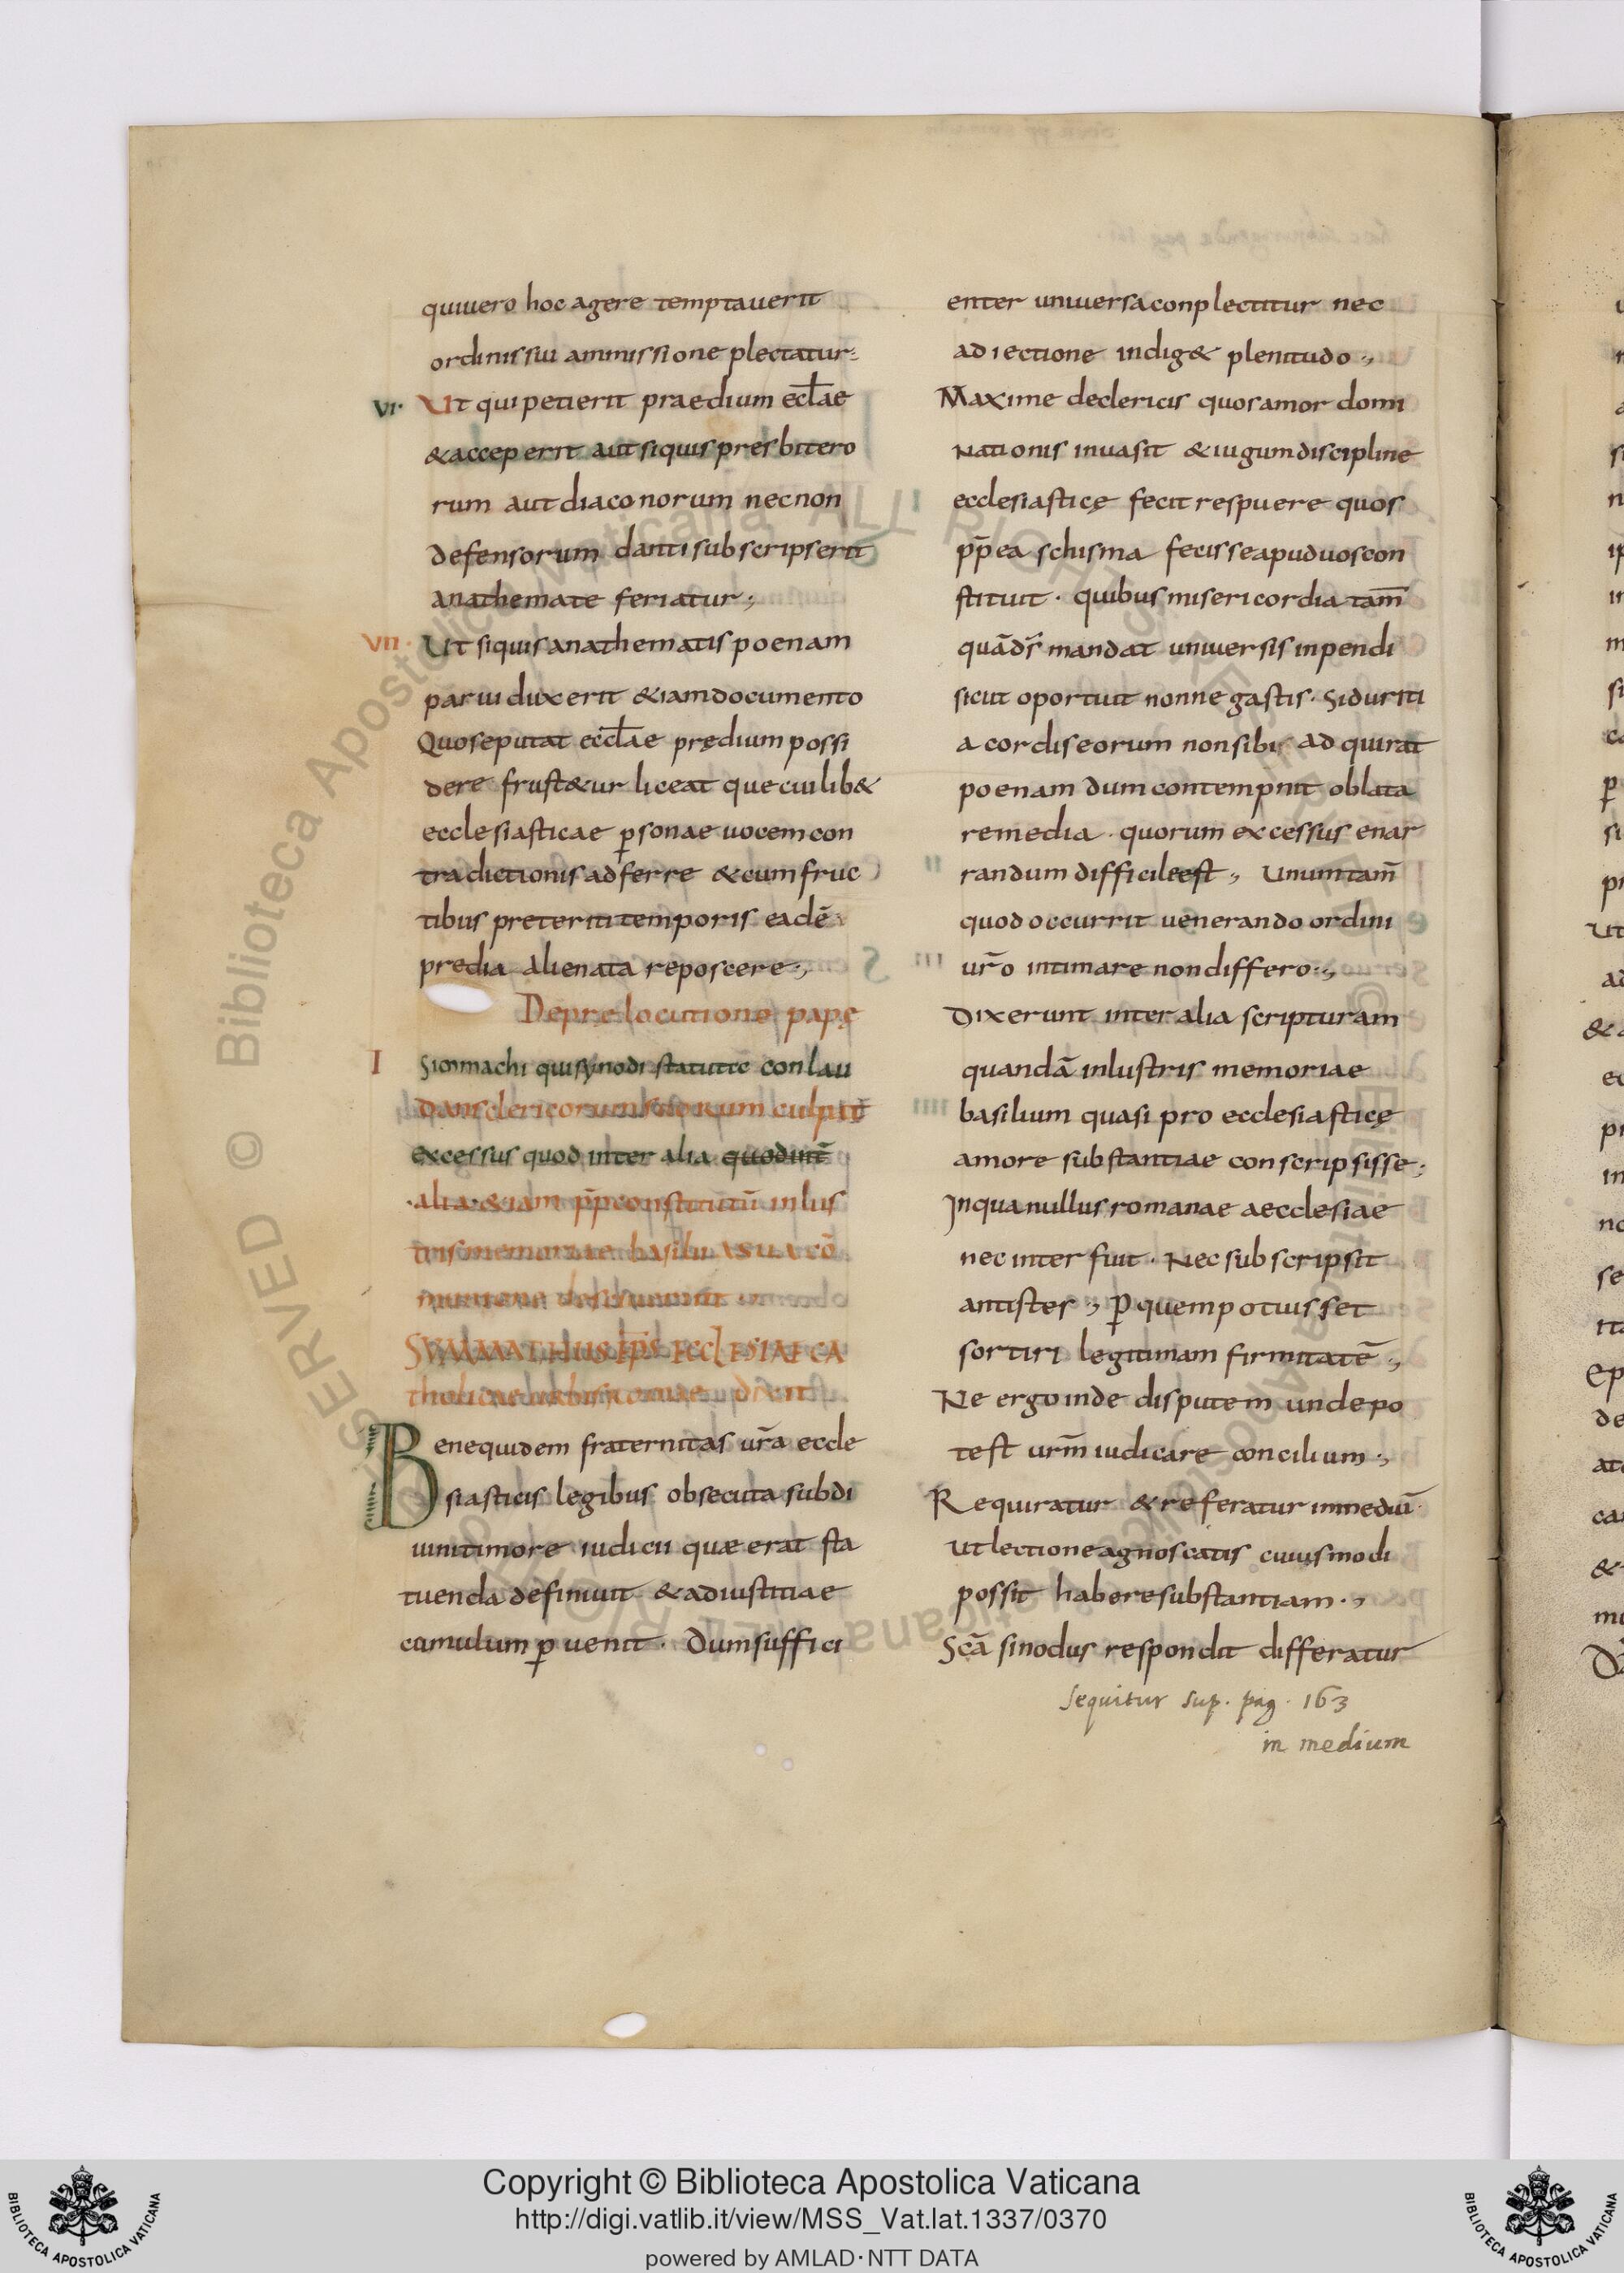 quiuero hoc agere temptauerit
ordinis sui ammissione plectatur
VI· Ut qui petierit praedium eccl̄ae
& acceperit aut siquis presbitero
rum aut diaconorum necnon
defensorum danti subscripserit
anathemate feriatur ;
VII· Ut siquis anathematis poenam
parui duxerit & iam documento
Quose putat eccl̄ae prędium possi
dere frust&ur liceat que cui lib&
ecclesiasticae ꝑsonae uocem con
tradictionis adferre & cum fruc
tibus preteriti temporis eadē
predia alienata reposcere ;
De pręlocutione papę
I Simmachi qui synodi statute conlau
dans clericorum suorum culpat
excessus quod inter alia quod int̄
alia & iam pp̄ constitutū inlus
tris memoriae basilii
SYMMATHUS EPS ECCLESIAE CA
tholicae urbis romae dixit
Bene quidem fraternitas ur̄a eccle
siasticis legibus obsecuta sub di
uini timore iudicii quae erat sta
tuenda definiuit & ad iustitiae
cumulum ꝑuenit · Dum suffici
enter uniuersa conplectitur nec
adiectione indig& plenitudo ;
Maxime de clericis quos amor domi
nationis inuasit & iugum discipline
ecclesiasticę fecit respuere quos
pp̄ ea schisma fecisse apud uos con
stitit · quibus misericordia tam̄
quā ds̄ mandat uniuersis inpendi
sicut oportuit non negastis · Si duriti
a cordis eorum non sibi adquirat
poenam dum contempnit oblata
remedia · quorum excessus enar
randum difficile est ; Unum tam̄
quod occurrit uenerando ordini
ur̄o intimare non differo ;
Dixerunt inter alia scripturam
quandā inlustris memoriae
basilium quasi pro ecclesiasticę
amore substantiae conscripsisse ;
In qua nullus romanae aecclesiae
nec interfuit · Nec subscripsit
antistes ; ꝑ quem potuisset
sortiri legitimam firmitatē ;
Ne ergo inde disputem unde po
test urm̄ iudicare concilium ;
Requiratur & referatur in mediū·
Ut lectione agnoscatis cuiusmodi
possit habere substantiam ·,
Scā sinodus respondit differatur
sequitur sup. pag. 163
in medium
Copyright © Biblioteca Apostolica Vaticana
http://digi.vatlib.it/view/MSS_Vat.lat.1337/0370
powered by AMLAD·NTT DATA
BIBLIOTECA APOSTOLICA VATICANA
BIBLIOTECA APOSTOLICA VATICANA